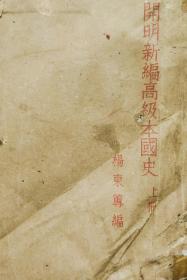 開明新編高級本國史 上冊
楊東蓴編